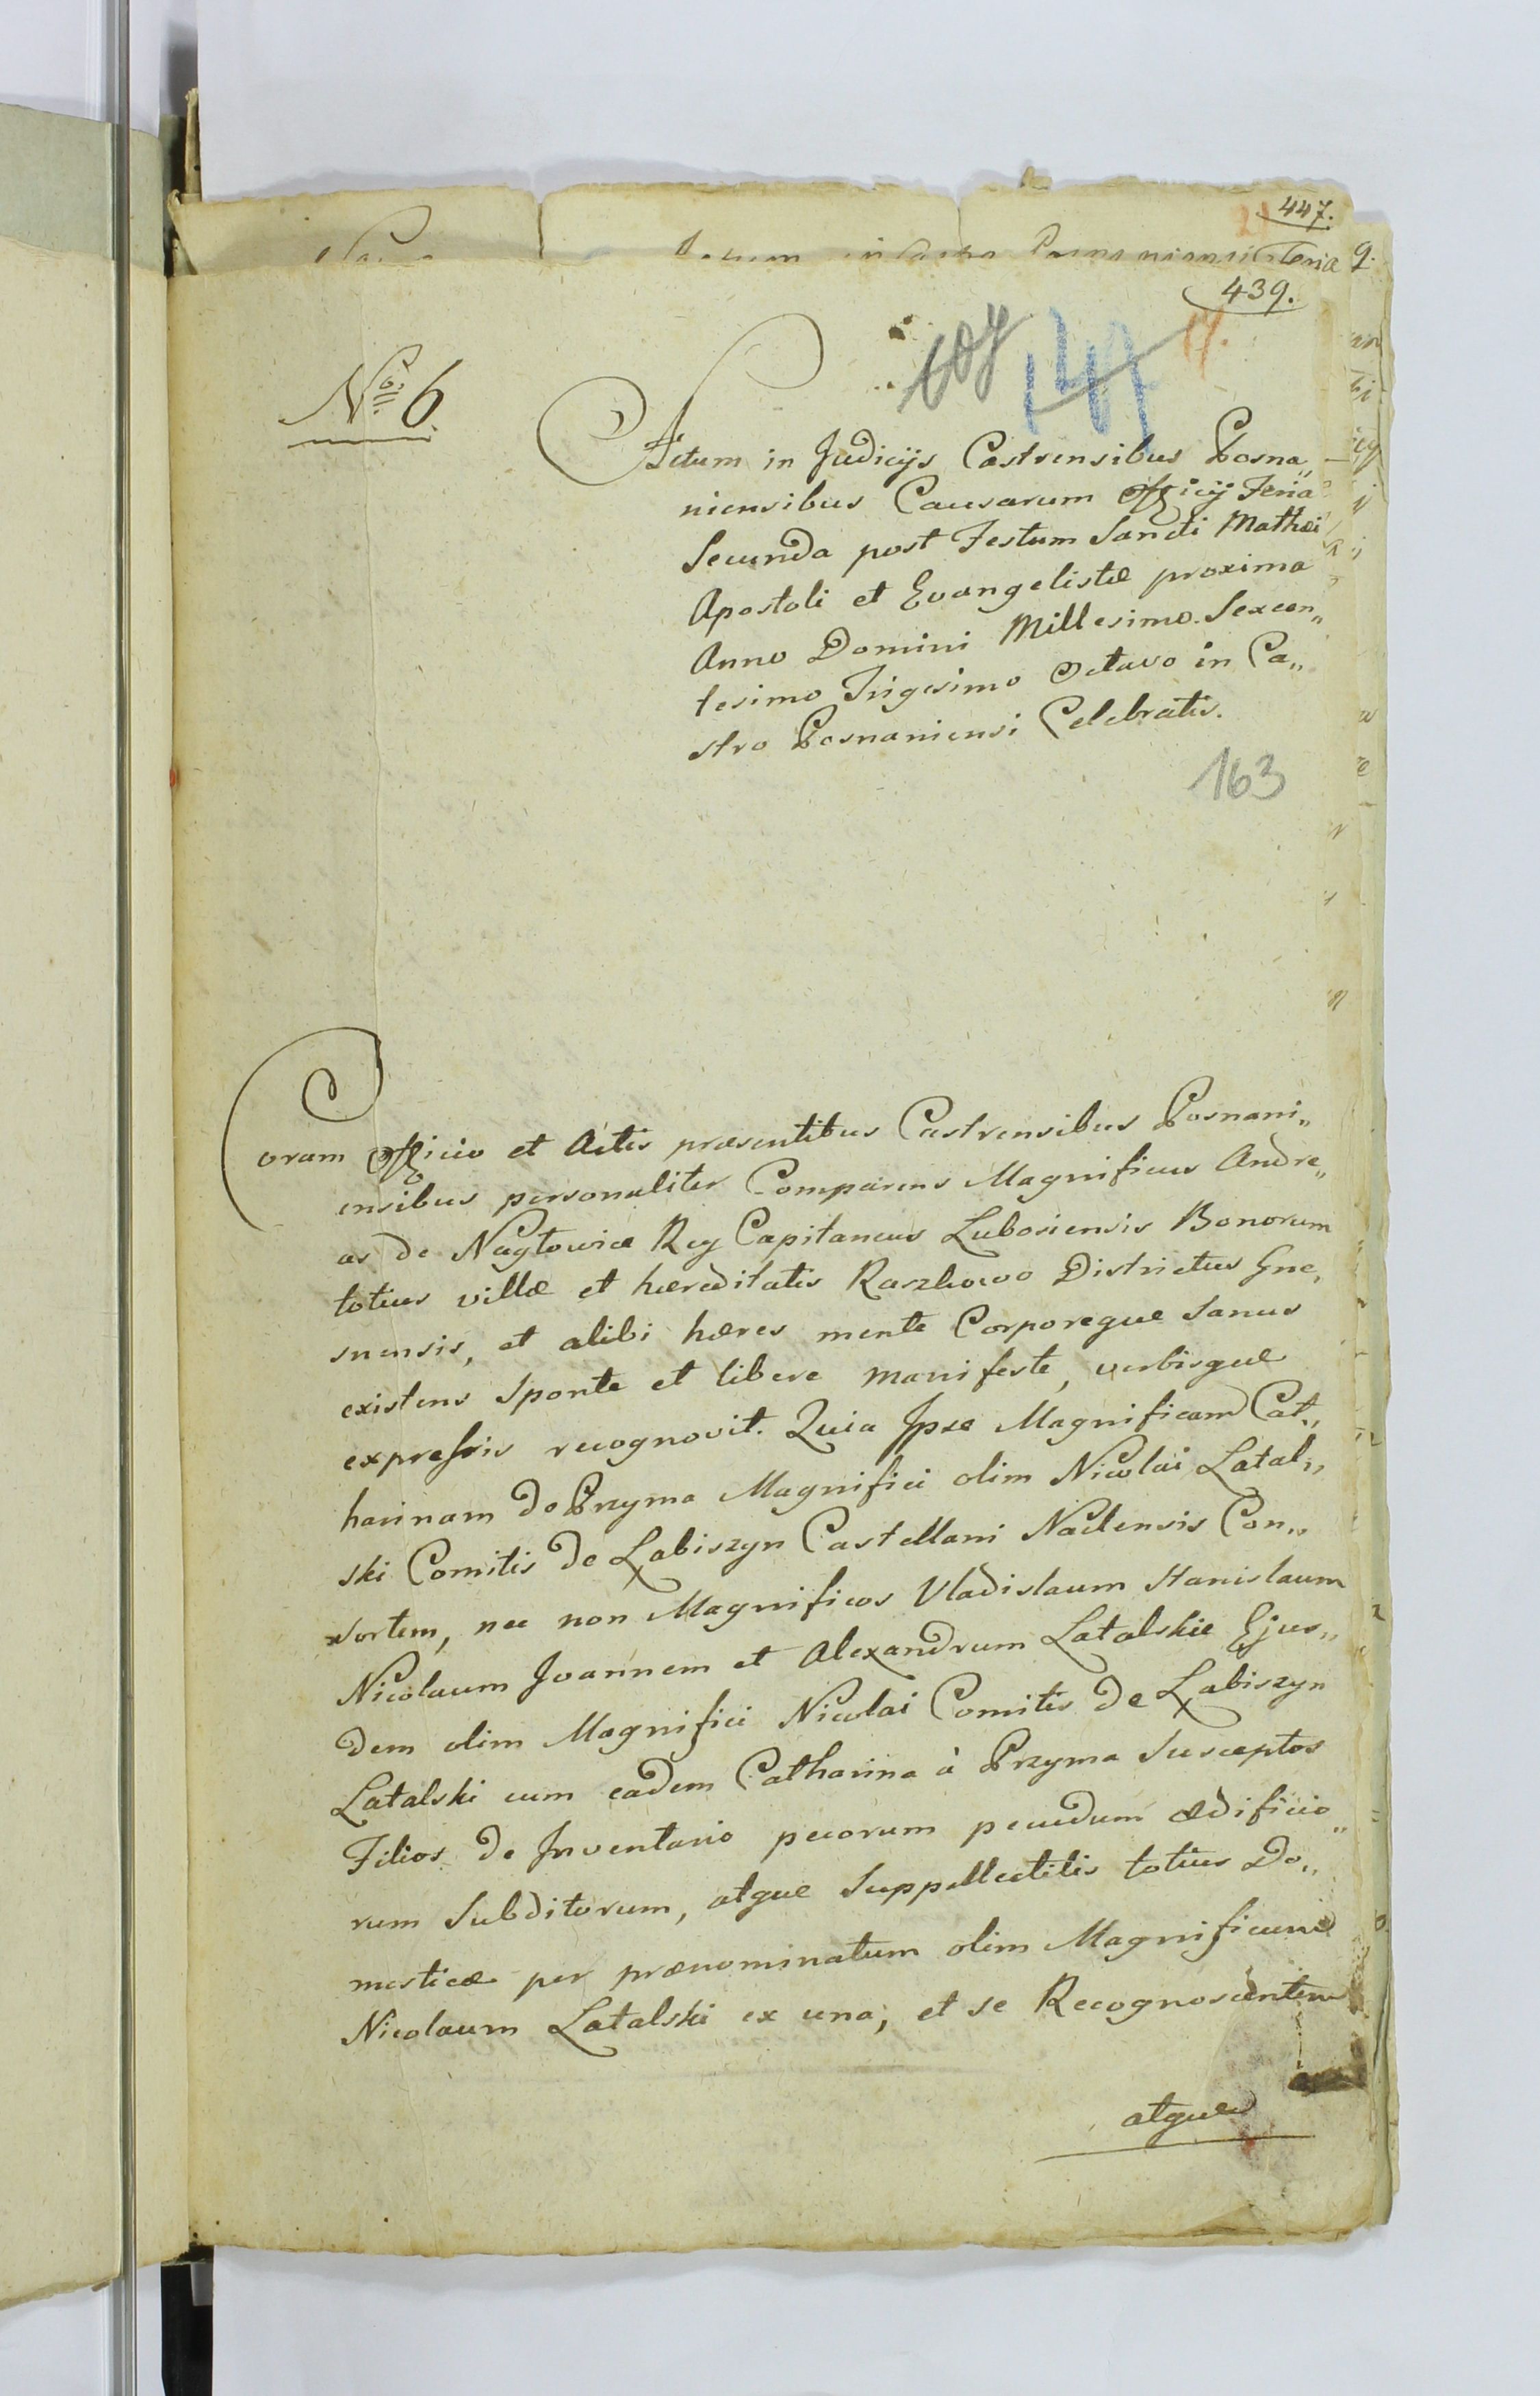 447.
Feria
439.
17.
No 6.
Actum in Judicijs Castrensibus Posna„
niensibus Causarum Officij Feria
Secunda post Festum Sancti Mathæi
Apostoli et Evangelistæ proxima
Anno Domini Millesimo Sexcen„
tesimo Trigesimo Octavo in Ca„
stro Posnaniensi Celebratis.
163
Coram Officio et Actis præsentibus Castrensibus Posnani„
ensibus personaliter Comparens Magnificus Andre„
as de Nagłowice Rey Capitaneus Lubosiensis Bonorum
totius villæ et hæreditatis Raszkowo Districtus Gne„
snensis, et alibi hæres mente Corporeque Sanus
existens Sponte et libere manifeste, verbisque
expressis recognovit. Quia Ipse Magnificam Cat„
harinam de Przyma Magnifici olim Nicolai Latal„
ski Comitis de Łabiszyn Castellani Naclensis Con„
sortem, nec non Magnificos Vladislaum Stanislaum
Nicolaum Joannem et Alexandrum Latalskie Ejus„
dem olim Magnifici Nicolai Comitis de Łabiszyn
Latalski cum eadem Catharina à Przyma Susceptos
Filios de Inventario pecorum pecudum ædificio„
rum Subditorum, atque Suppellectilis totius Do„
mesticæ per prænominatum olim Magnificum
Nicolaum Latalski ex una, et se Recognoscentem
atque